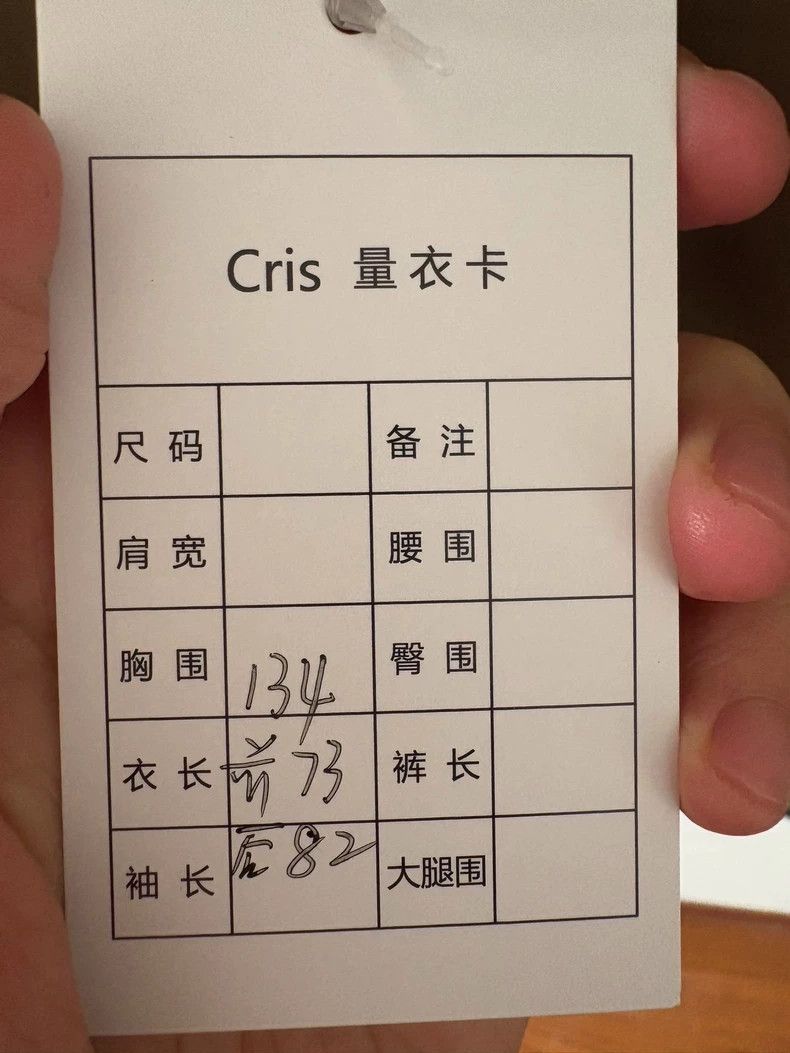 Cris 量衣卡
尺码 备注
肩宽 腰围
胸围 134 臀围
衣长 前73 裤长
袖长 后82 大腿围